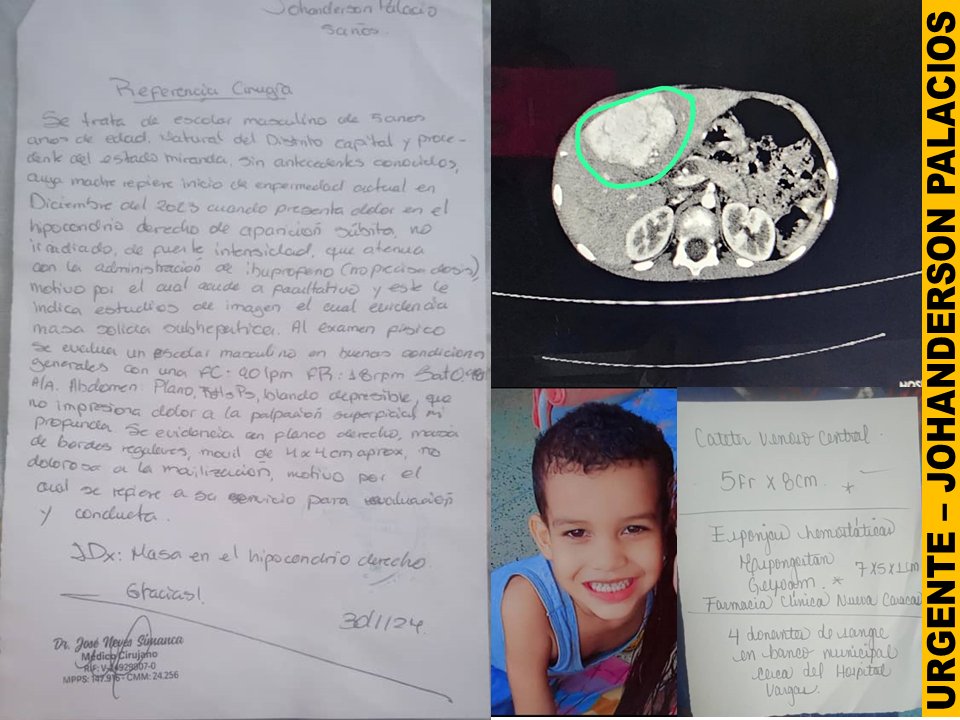 Johanderson Palacio
5años.
Referencia Cirugía
Se trata de escolar masculino de 5anos
anos de edad. Natural del Distrito capital y proce-
dente del estado miranda, sin antecedentes conocidos,
cuya madre refiere inicio de enfermedad actual en
Diciembre del 2023 cuando presenta dolor en el
hipocondrio derecho de aparición súbita, no
irradiado, de fuerte intensidad, que atenua
con la administración de ibuprofeno (no precisa dosis),
motivo por el cual acude a facultativo y este le
indica estudios de imagen el cual evidencia
masa solida subhepatica. Al examen fisico
se evalua un escolar masculino en buenas condiciones
generales con una FC: 90 lpm FR: 18 rpm SatO2 98
A/A. Abdomen: Plano, blando depresible, que
no impresiona dolor a la palpación superficial ni
profunda. Se evidencia en flanco derecho, masa
de bordes regulares, movil de 4x4cm aprox, no
dolorosa a la movilización, motivo por el
cual se refiere a su servicio para evaluación
y conducta.
IDx: Masa en el hipocondrio derecho.
Gracias!
30/1/24.
Dr. José Neves Simanca
Médico Cirujano
RIF: V-24929807-0
MPPS: 147.916 - CMM: 24.256
HOS
Cateter Venoso Central.
5Fr x 8cm. *
Esponjas hemostáticas
7x5x1cm
*
Farmacia Clínica Nueva Caracas
4 donantes de sangre
en banco municipal
cerca del Hospital
Vargas.
URGENTE – JOHANDERSON PALACIOS